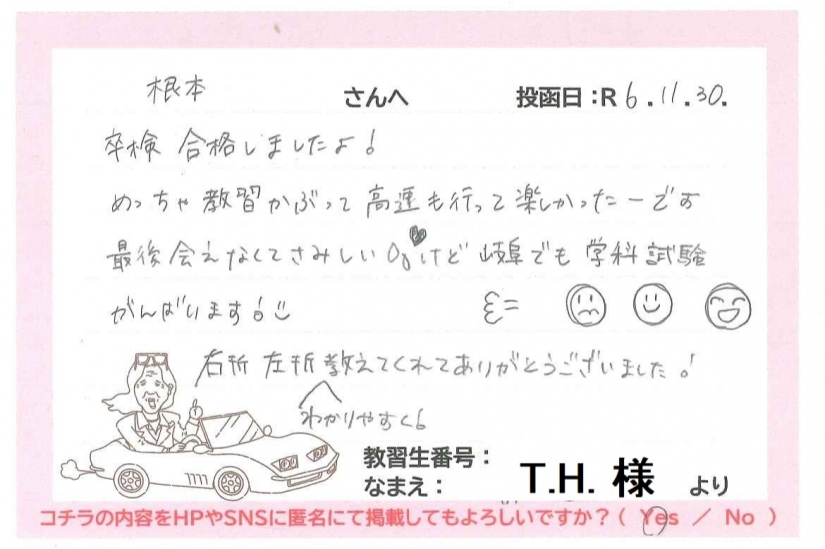 根本 さんへ 投函日:R6.11.30.
卒検 合格しましたよ!
めっちゃ教習かぶって高速も行って楽しかったーです
最後会えなくてさみしい けど 岐阜でも学科試験
がんばいます!
右折 左折 教えてくれてありがとうございました!
わかりやすく
教習生番号:
なまえ: T.H. 様 より
コチラの内容をHPやSNSに匿名にて掲載してもよろしいですか?( Yes / No )